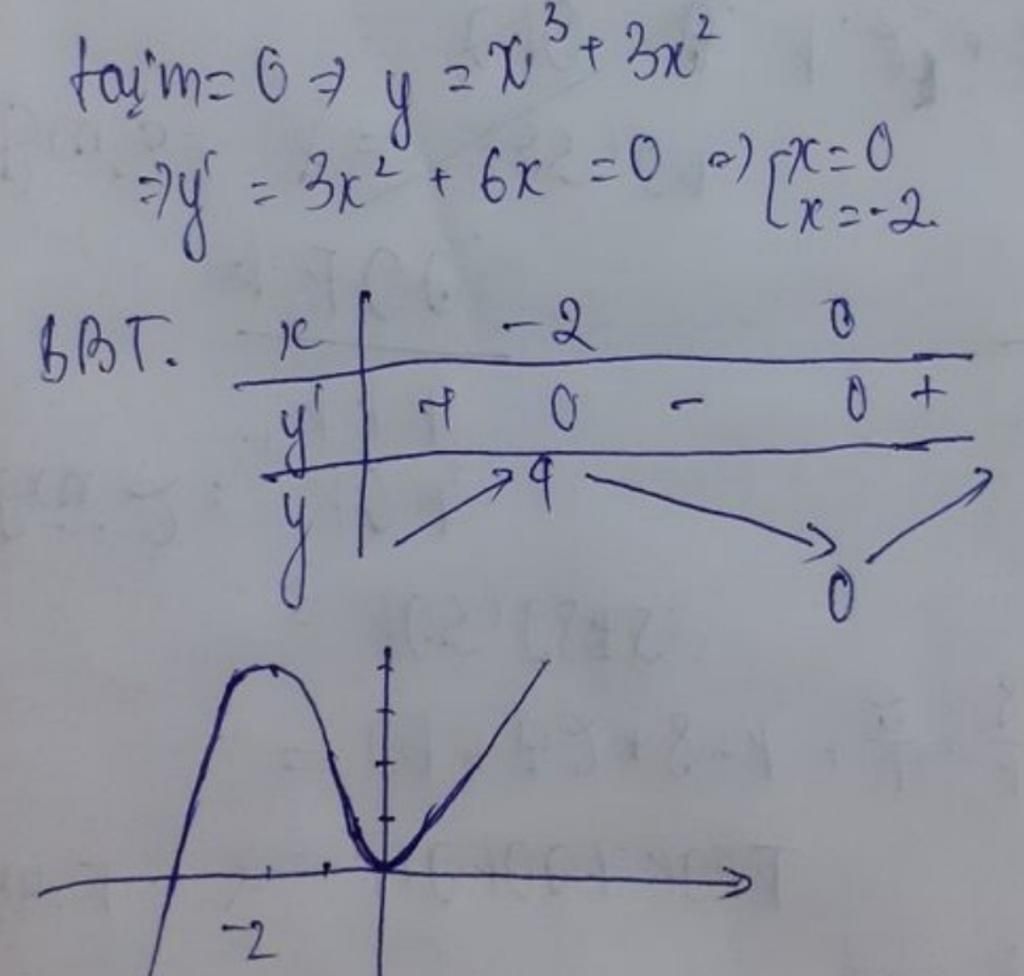 tại m = 0 ⇒ y = x³ + 3x²
⇒ y' = 3x² + 6x = 0 ⇒ [x = 0
x = -2.
BBT.
x -2 0
y' + 0 - 0 +
y 4 0
-2